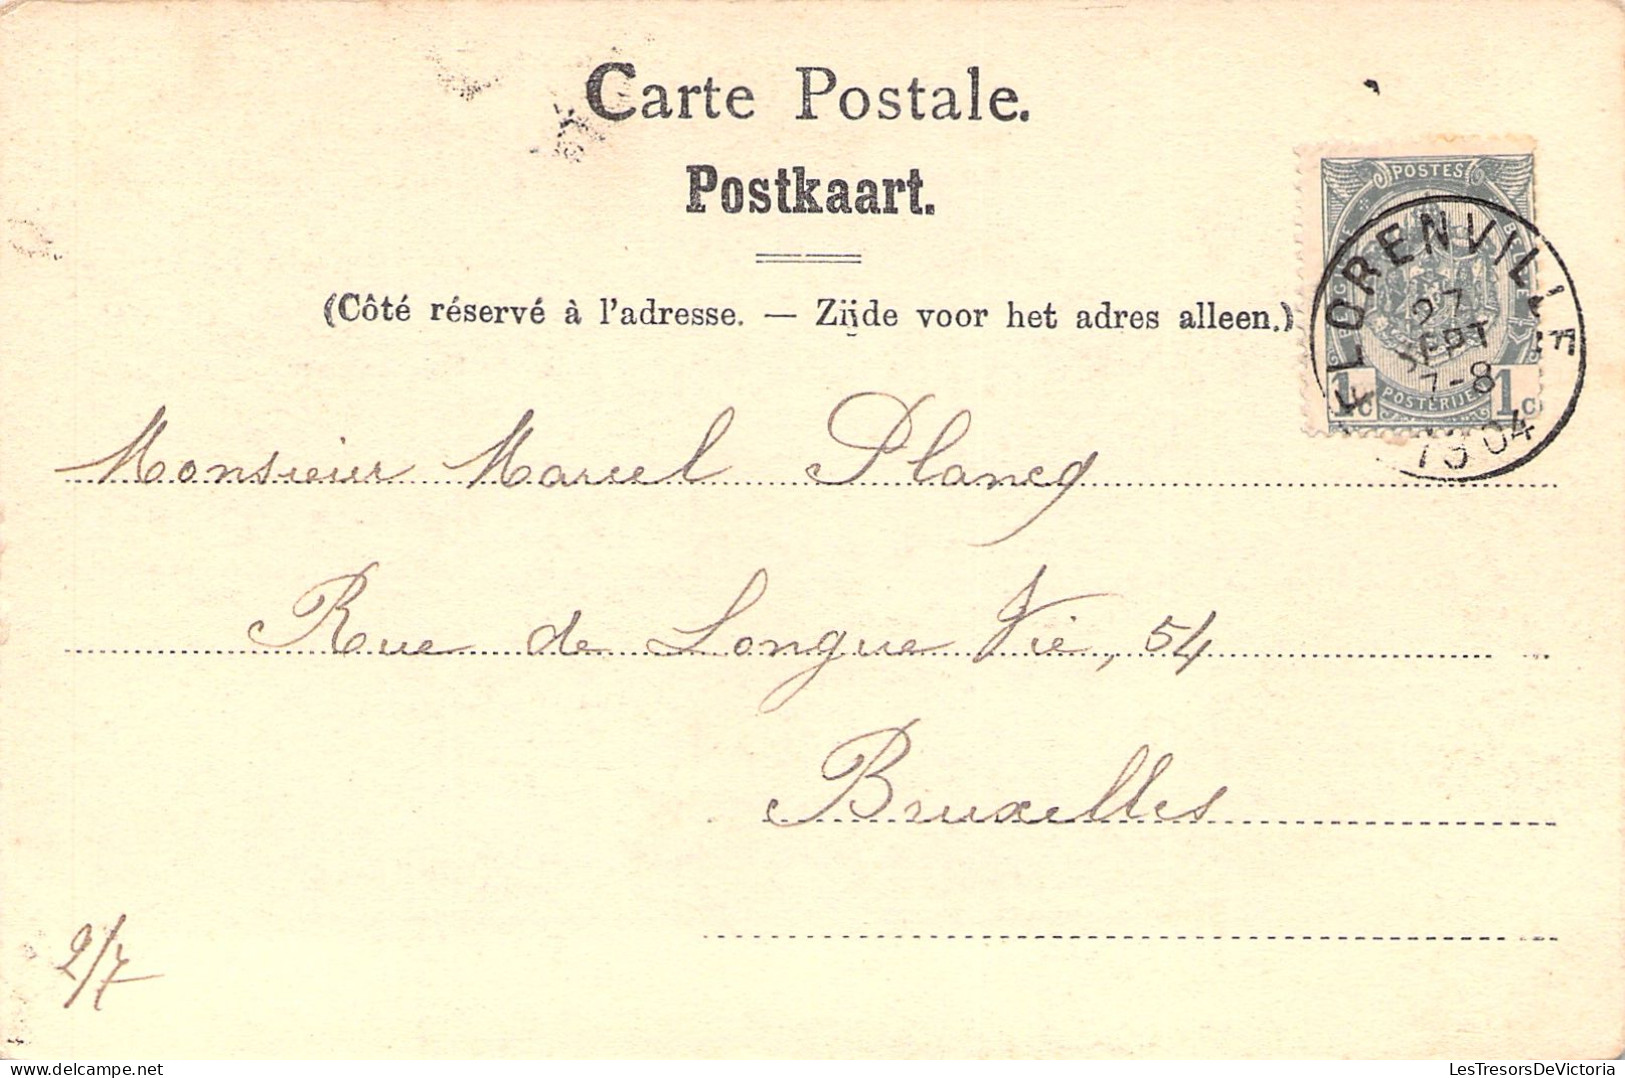 Carte Postale.
Postkaart.
(Côté réservé à l'adresse. — Zijde voor het adres alleen.)
POSTES
1c POSTERIJEN 1c
FLORENVILLE
27
SEPT
7-8
1904
Monsieur Marcel Plancq
Rue de Longue Vie, 54
Bruxelles
2/7
LesTresorsDeVictoria